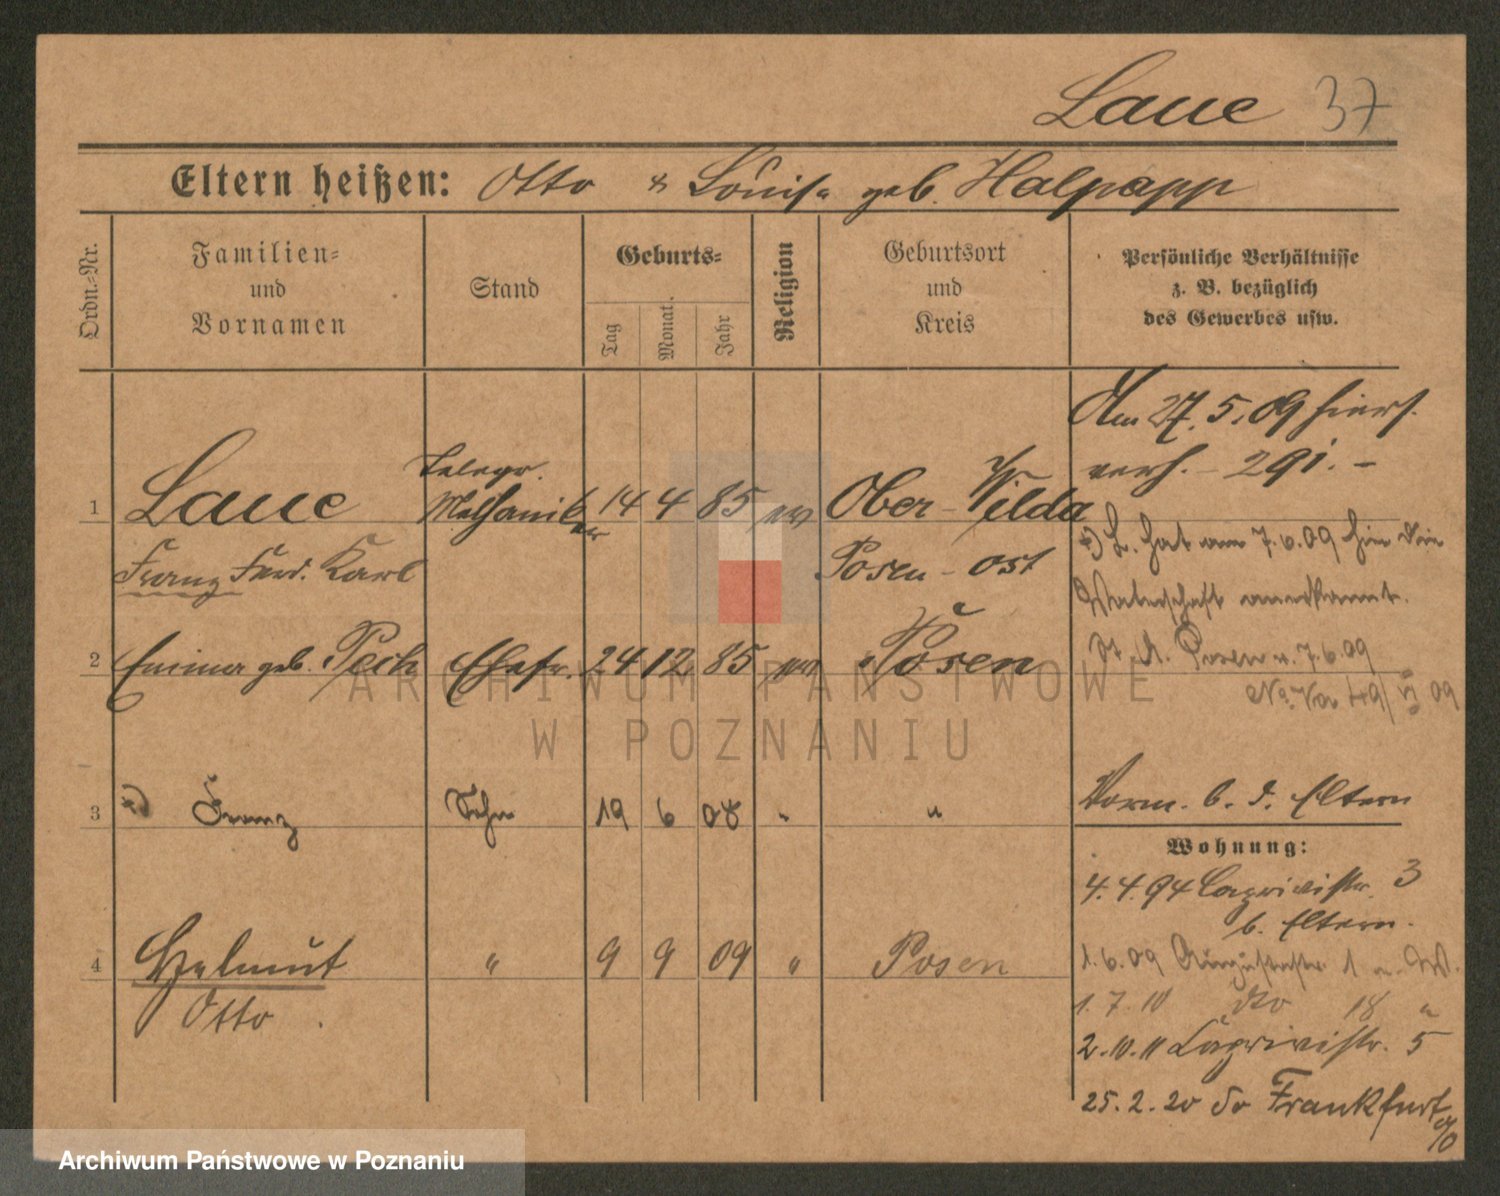 Laue 37
Eltern heißen: Otto & Louise geb. Halpapp
Ordn.-Nr.
Familien- und Vornamen
Stand
Geburts-
Tag
Monat
Jahr
Religion
Geburtsort und Kreis
Persönliche Verhältnisse
z. B. bezüglich
des Gewerbes usw.
Am 27.5.09 hiers.
verh. – 291. –
1 Laue Telegr. Mechaniker 14 4 85 ev Ober-Wilda
Franz Ferd. Karl Posen-Ost
L. hat am 7.6.09 hier die
Vaterschaft anerkannt.
St. A. Posen v. 7.6.09
49/VI 09
2 Emma geb. Pech Ehefr. 24 12 85 ev Posen
3 Franz Sohn 19 6 08 " "
Vorm. b. d. Eltern
Wohnung:
4.4.94 Caprivistr. 3
b. Eltern.
4 Helmut " 9 9 09 " Posen
Otto
1.6.09 Augustastr. 1 W.
1.7.10 dto 18 "
2.10.11 Caprivistr. 5
25.2.20 Frankfurt
a/O
ARCHIWUM PAŃSTWOWE
W POZNANIU
Archiwum Państwowe w Poznaniu